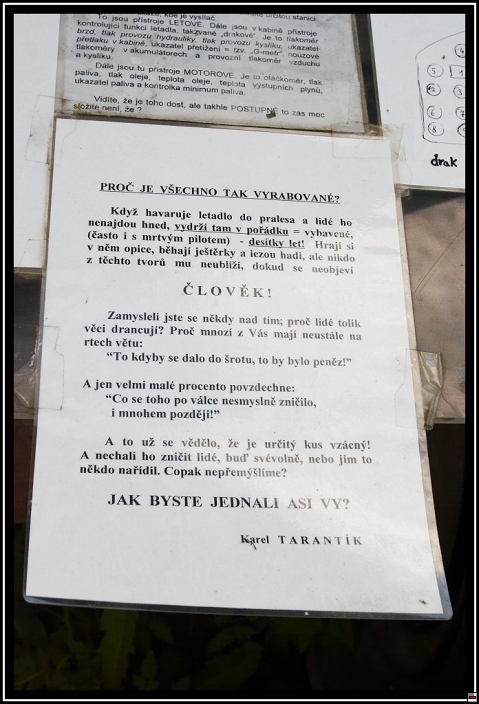 de, kde je vysílač.
určitou stanici
To jsou přístroje LETOVÉ. Dále jsou v kabině přístroje
kontrolující funkci letadla, takzvané „drakové“. Je to tlakoměr
brzd, tlak provozu hydrauliky, tlak provozu kyslíku, ukazatel
přetlaku v kabině, ukazatel přetížení = tzv. „G-metr“, nouzové
tlakoměry v akumulátorech a provozní tlakoměr vzduchu
a kyslíku.
Dále jsou tu přístroje MOTOROVÉ. Je to otáčkoměr, tlak
paliva, tlak oleje, teplota oleje, teplota výstupních plynů,
ukazatel paliva a kontrolka minimum paliva.
Vidíte, že je toho dost, ale takhle POSTUPNĚ to zas moc
složité není, že ?
4
5
1
2
6
8
drak
PROČ JE VŠECHNO TAK VYRABOVANÉ?
Když havaruje letadlo do pralesa a lidé ho
nenajdou hned, vydrží tam v pořádku = vybavené,
(často i s mrtvým pilotem) - desítky let! Hrají si
v něm opice, běhají ještěrky a lezou hadi, ale nikdo
z těchto tvorů mu neublíží, dokud se neobjeví
ČLOVĚK!
Zamysleli jste se někdy nad tím; proč lidé tolik
věci drancují? Proč mnozí z Vás mají neustále na
rtech větu:
“To kdyby se dalo do šrotu, to by bylo peněz!”
A jen velmi malé procento povzdechne:
“Co se toho po válce nesmyslně zničilo,
i mnohem později!”
A to už se vědělo, že je určitý kus vzácný!
A nechali ho zničit lidé, buď svévolně, nebo jim to
někdo nařídil. Copak nepřemýšlíme?
JAK BYSTE JEDNALI ASI VY?
Karel TARANTÍK